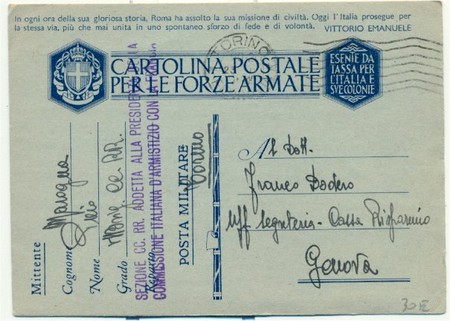 In ogni ora della sua gloriosa storia, Roma ha assolto la sua missione di civiltà. Oggi l'Italia prosegue per
la stessa via, più che mai unita in uno spontaneo sforzo di fede e di volontà. VITTORIO EMANUELE
TORINO
CARTOLINA POSTALE
PER LE FORZE ARMATE
ESENTE DA
TASSA PER
L'ITALIA E
SVE COLONIE
Mittente
Cognome
Nome
Grado
CC. RR.
Reparto
SEZIONE CC. RR. ADDETTA ALLA PRESIDENZA
COMMISSIONE ITALIANA D'ARMISTIZIO CON LA
POSTA MILITARE
Torino
Al Dott.
Franco Dodero
Uff Segreteria - Cassa Risparmio
Genova
30E